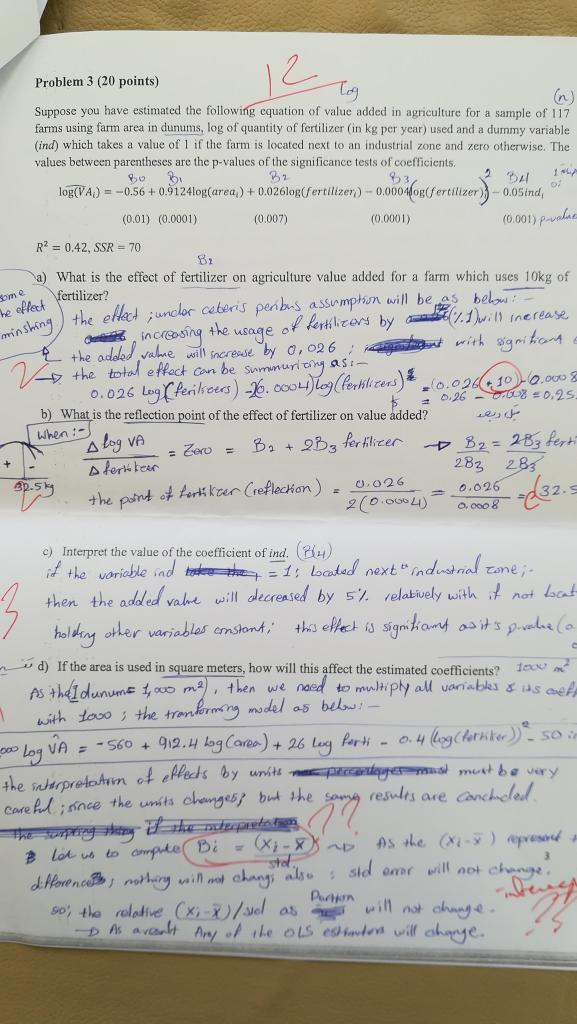 12
Problem 3 (20 points)
log
(n)
Suppose you have estimated the following equation of value added in agriculture for a sample of 117
farms using farm area in dunums, log of quantity of fertilizer (in kg per year) used and a dummy variable
(ind) which takes a value of 1 if the farm is located next to an industrial zone and zero otherwise. The
values between parentheses are the p-values of the significance tests of coefficients.
B0 B1 B2 B3 B4
log(VAi) = −0.56 + 0.9124log(areai) + 0.026log(fertilizeri) − 0.0004(log(fertilizer)i)² − 0.05indi
(0.01) (0.0001) (0.007) (0.0001) (0.001) p-value
R² = 0.42, SSR = 70
B2
a) What is the effect of fertilizer on agriculture value added for a farm which uses 10kg of
fertilizer?
some
the effect
minshing
the effect ; under ceteris peribus assumption will be as below: -
increasing the usage of fertilizers by (%1) will increase
the added value will increase by 0,026 ; with significant
2
→ the total effect can be summurizing as:-
0.026 log(ferilisers) - 2(0.0004) log(fertilizers) = (0.026 * 10 - (0.0008
= 0.26 - 0.008 = 0.25
b) What is the reflection point of the effect of fertilizer on value added?
when:-
Δ log VA / Δ fertilizer = Zero = B2 + 2B3 fertilizer → B2 = 2B3 ferti
2B3 2B3
+ -
32.5kg
the point of fertilizer (reflection) = 0.026 / 2(0.0004) = 0.026 / 0.0008 = 32.5
c) Interpret the value of the coefficient of ind. (B4)
if the variable ind = 1; Located next to industrial zone;-
3
then the added value will decreased by 5% relatively with if not locat
holding other variables constant; this effect is significant as it's p-value (0
d) If the area is used in square meters, how will this affect the estimated coefficients? 1000 m²
As the (1 dunum = 1,000 m²), then we need to multiply all variables & its coeff
with 1000 ; the tranforming model as below:-
000 Log VA = -560 + 912.4 log(area) + 26 Log ferti - 0.4 (log(fertilizer))² - 50 in
the interpretation of effects by units must be very
careful ; since the units changes; but the same results are concluded.
??
Let us to compute Bi = (Xi - X̄) / std → As the (Xi-x̄) represent
differences; nothing will not change; also : std error will not change.
so; the relative (Xi-x̄)/std as Portion will not change.
→ As a result Any of the OLS estimators will change.
intercept
??